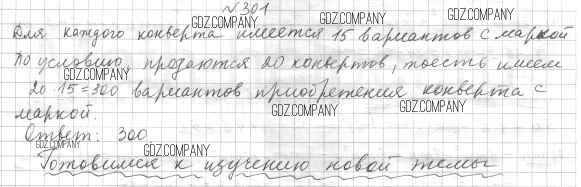 №301
GDZ.COMPANY GDZ.COMPANY GDZ.COMPANY
Для каждого конверта имеется 15 вариантов с маркой
По условию, продаются 20 конвертов, тоесть имеем
GDZ.COMPANY GDZ.COMPANY GDZ.COMPANY
20·15=300 вариантов приобретения конверта с
маркой.
GDZ.COMPANY GDZ.COMPANY
Ответ: 300
GDZ.COMPANY GDZ.COMPANY
Готовимся к изучению новой темы